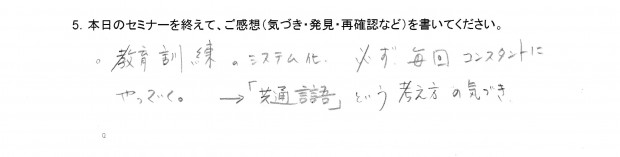 5. 本日のセミナーを終えて、ご感想(気づき・発見・再確認など)を書いてください。
。教育訓練のシステム化. 必ず毎回コンスタントに
やっていく。 →「共通言語」という考え方の気づき
。